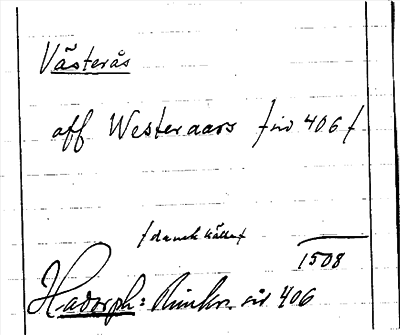 Västerås
aff Westeraars /sid 406/
/dansk källa/
1508
Hadorph: Rimkr. sid 406